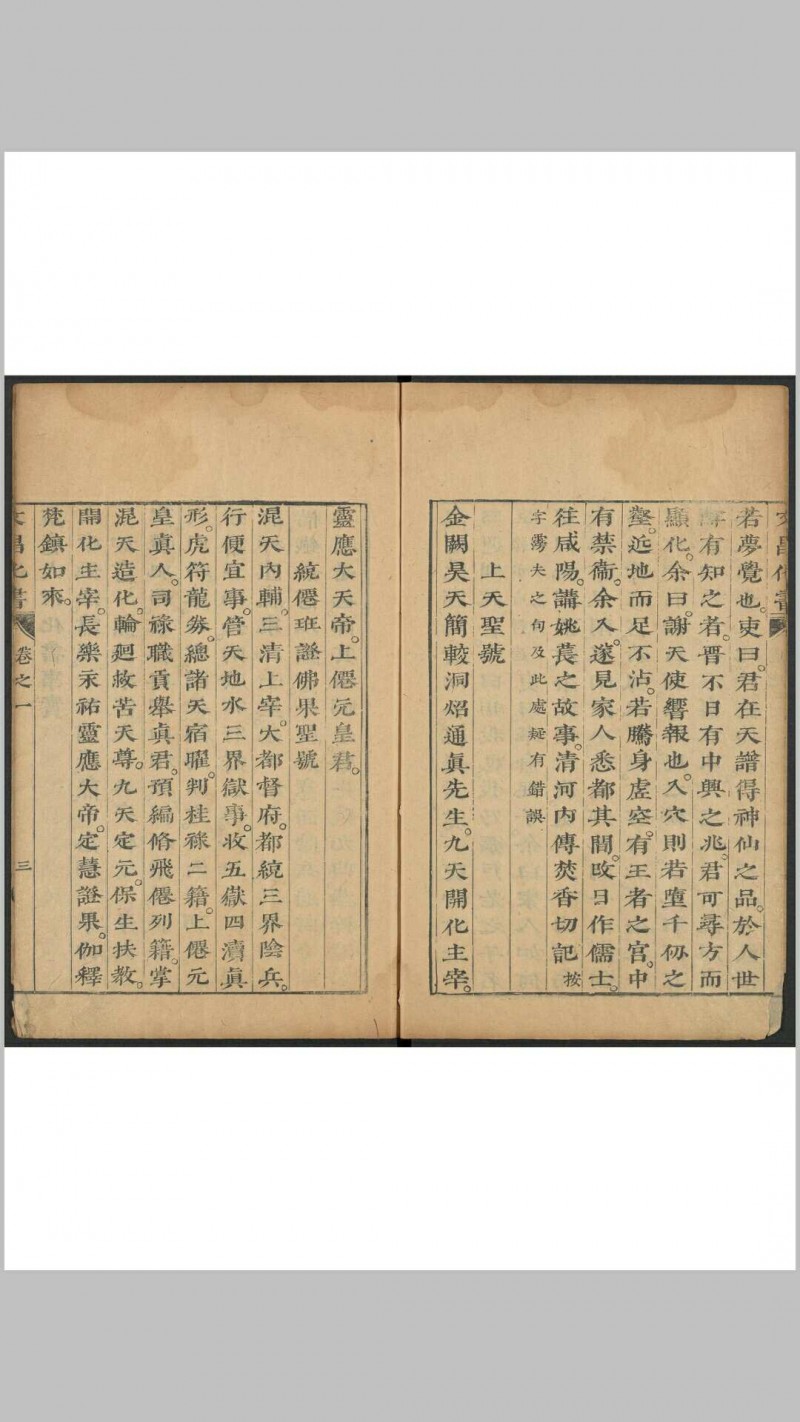 若夢覺也。吏曰。君在天譜得神仙之品。於人世
有知之者。晋不日有中興之兆。君可尋方而
顯化。余曰。謝天使響報也。入穴則若墮千仭之
壑。近地而足不沾。若騰身虛空。有王者之宮。中
有禁衞。余入。遂見家人悉都其間。改日作儒士。
往咸陽。講姚萇之故事。清河內傳焚香切記按
字霶夫之句及此處疑有錯誤
上天聖號
金闕昊天簡較洞炤通眞先生。九天開化主宰。
靈應大天帝。上僊元皇君。
統僊班證佛果聖號
混天內輔。三清上宰。大都督府。都統三界陰兵。
行便宜事。管天地水三界獄事。收五嶽四瀆眞
形。虎符龍劵。總諸天宿曜。判桂祿二籍。上僊元
皇眞人。司祿職貢舉眞君。預編脩飛僊列籍。掌
混天造化。輪廻救苦天尊。九天定元。保生扶教。
開化主宰。長樂永祐靈應大帝。定慧證果。伽釋
梵鎮如來。
文昌化書
卷之一
三